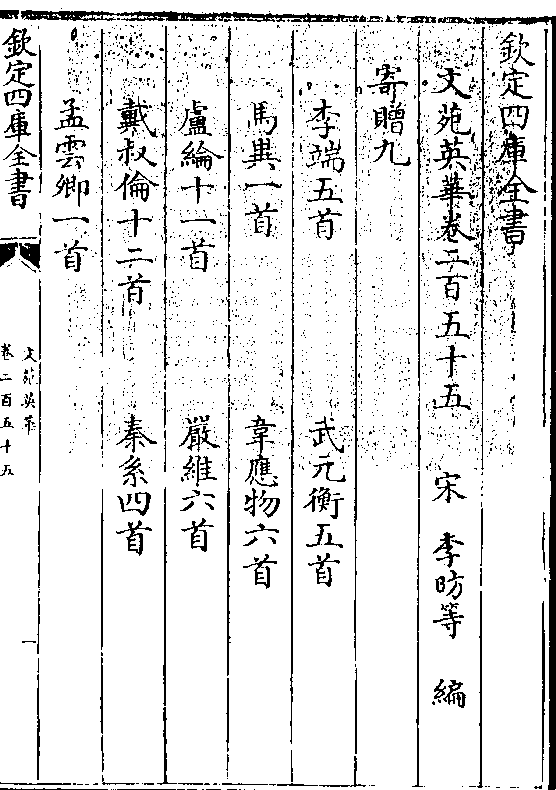 欽定四庫全書
文苑英華卷二百五十五 宋 李昉等 編
寄贈九
李端五首 武元衡五首
馬異一首 韋應物六首
盧綸十一首 嚴維六首
戴叔倫十二首 秦系四首
孟雲卿一首
欽定四庫全書
文苑英華
卷二百五十五
一